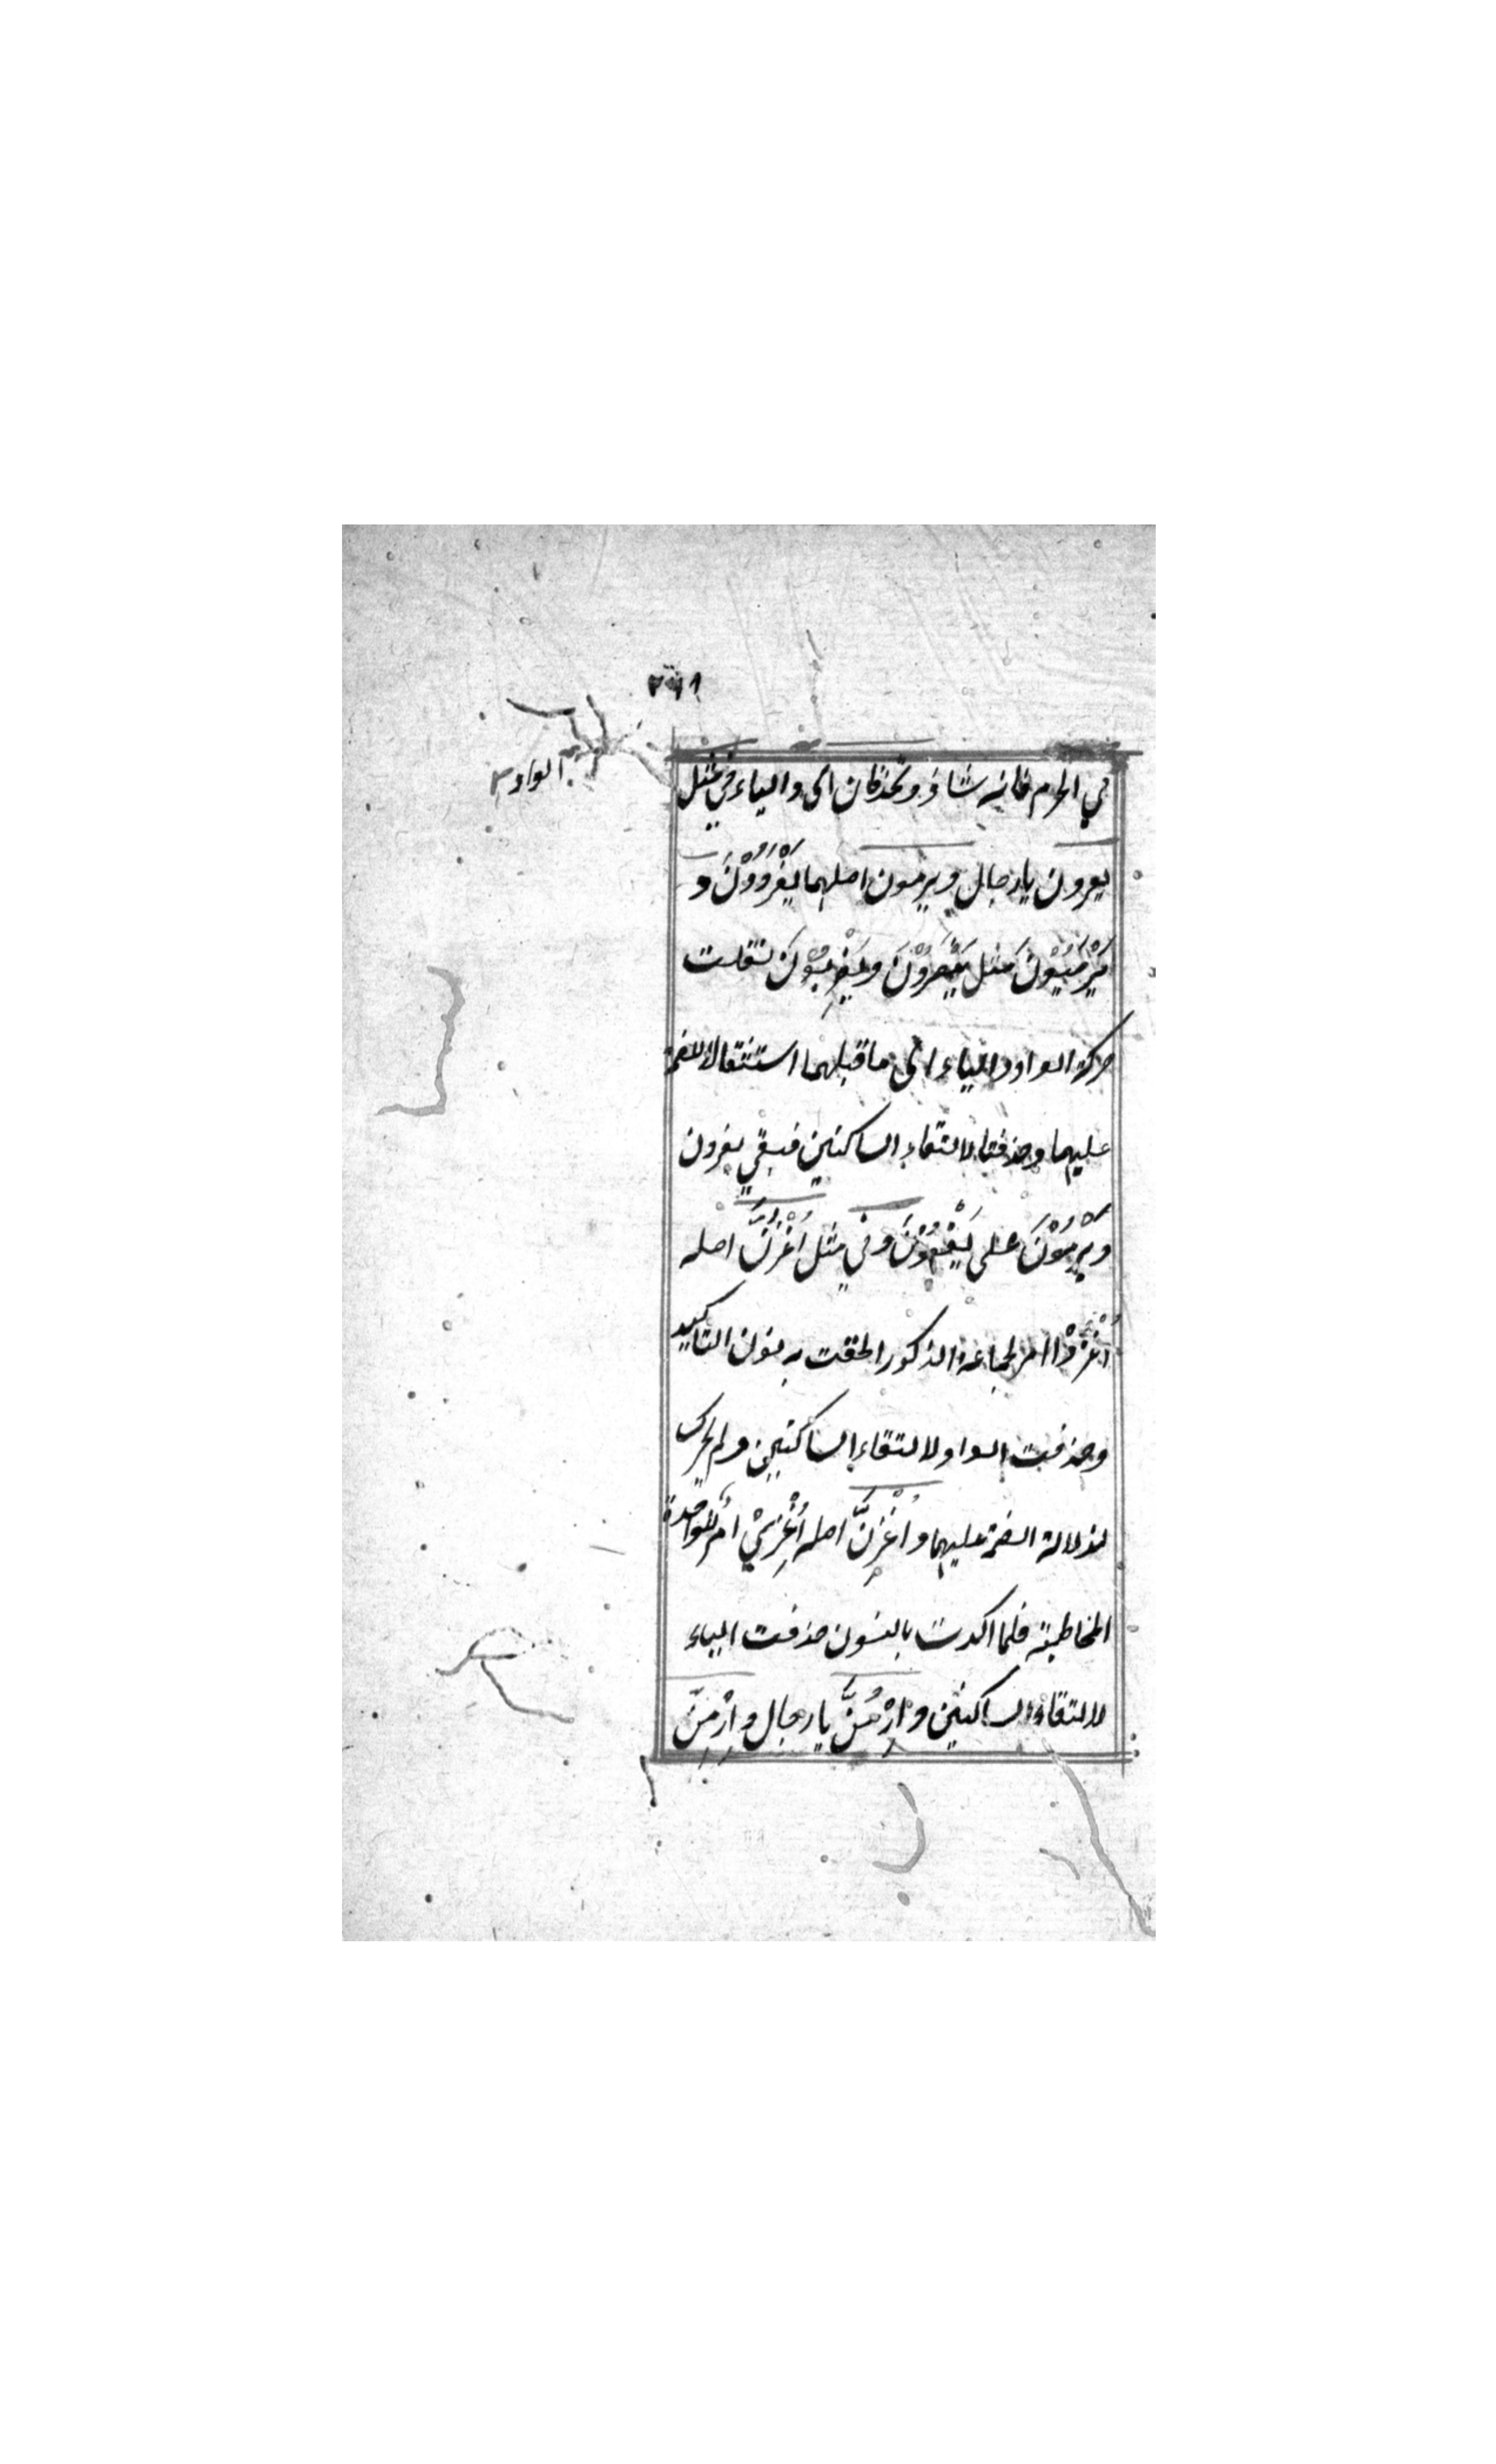 ٢٦١
الواو
في الجزم فانه شاذ وتحذفان اى والياء في مثل
يغزون يا رجال ويرميون اصلهما يَغْزُوُوْنَ و
يَرْمِيُوْنَ مثل يَنْصُرُوْنَ ويَضْرِبُوْنَ نقلت
حركة الواو والياء الى ما قبلهما استثقالا للضمة
عليهما وحذفتا لالتقاء الساكنين فبقي يغزون
ويَرْمُوْنَ على يَفْعُوْنَ وفي مثل اُغْزُنَّ اصله
اُغْزُوْا امر لجماعة الذكور الحقت به نون التاكيد
وحذفت الواو لالتقاء الساكنين ولم يحرك
لدلالة الضمة عليهما واُغْزِنَّ اصله اُغْزِيْ امر للواحدة
المخاطبة فلما اكدت بالنون حذفت الياء
لالتقاء الساكنين وارْمُنَّ يا رجال وارْمِنَّ